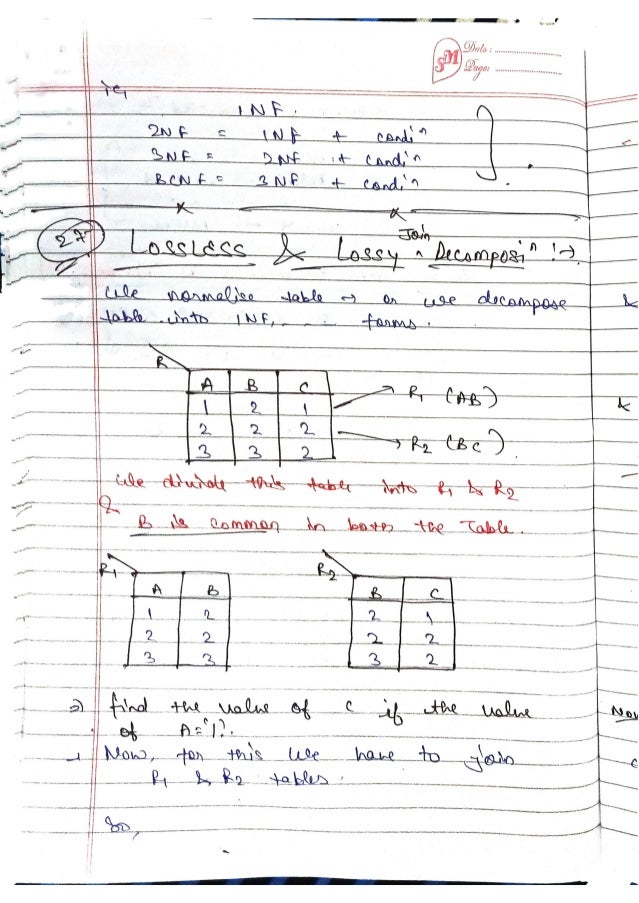 SM Date :
Page:
ie,
1NF.
2NF = 1NF + condi^n
3NF = 2NF + condi^n
BCNF = 3NF + condi^n
27 Lossless & Lossy Join Decomposi^n !→
We normalise table → or we decompose
table into 1NF, - - - forms.
R
A B C
1 2 1 → R1 (AB)
2 2 2
3 3 2 → R2 (BC)
We divide this table into R1 & R2
& B is common in both the Table.
R1 R2
A B B C
1 2 2 1
2 2 2 2
3 3 3 2
⇒ find the value of C if the value
of A='1'.
→ Now, for this we have to join
R1 & R2 tables.
So,